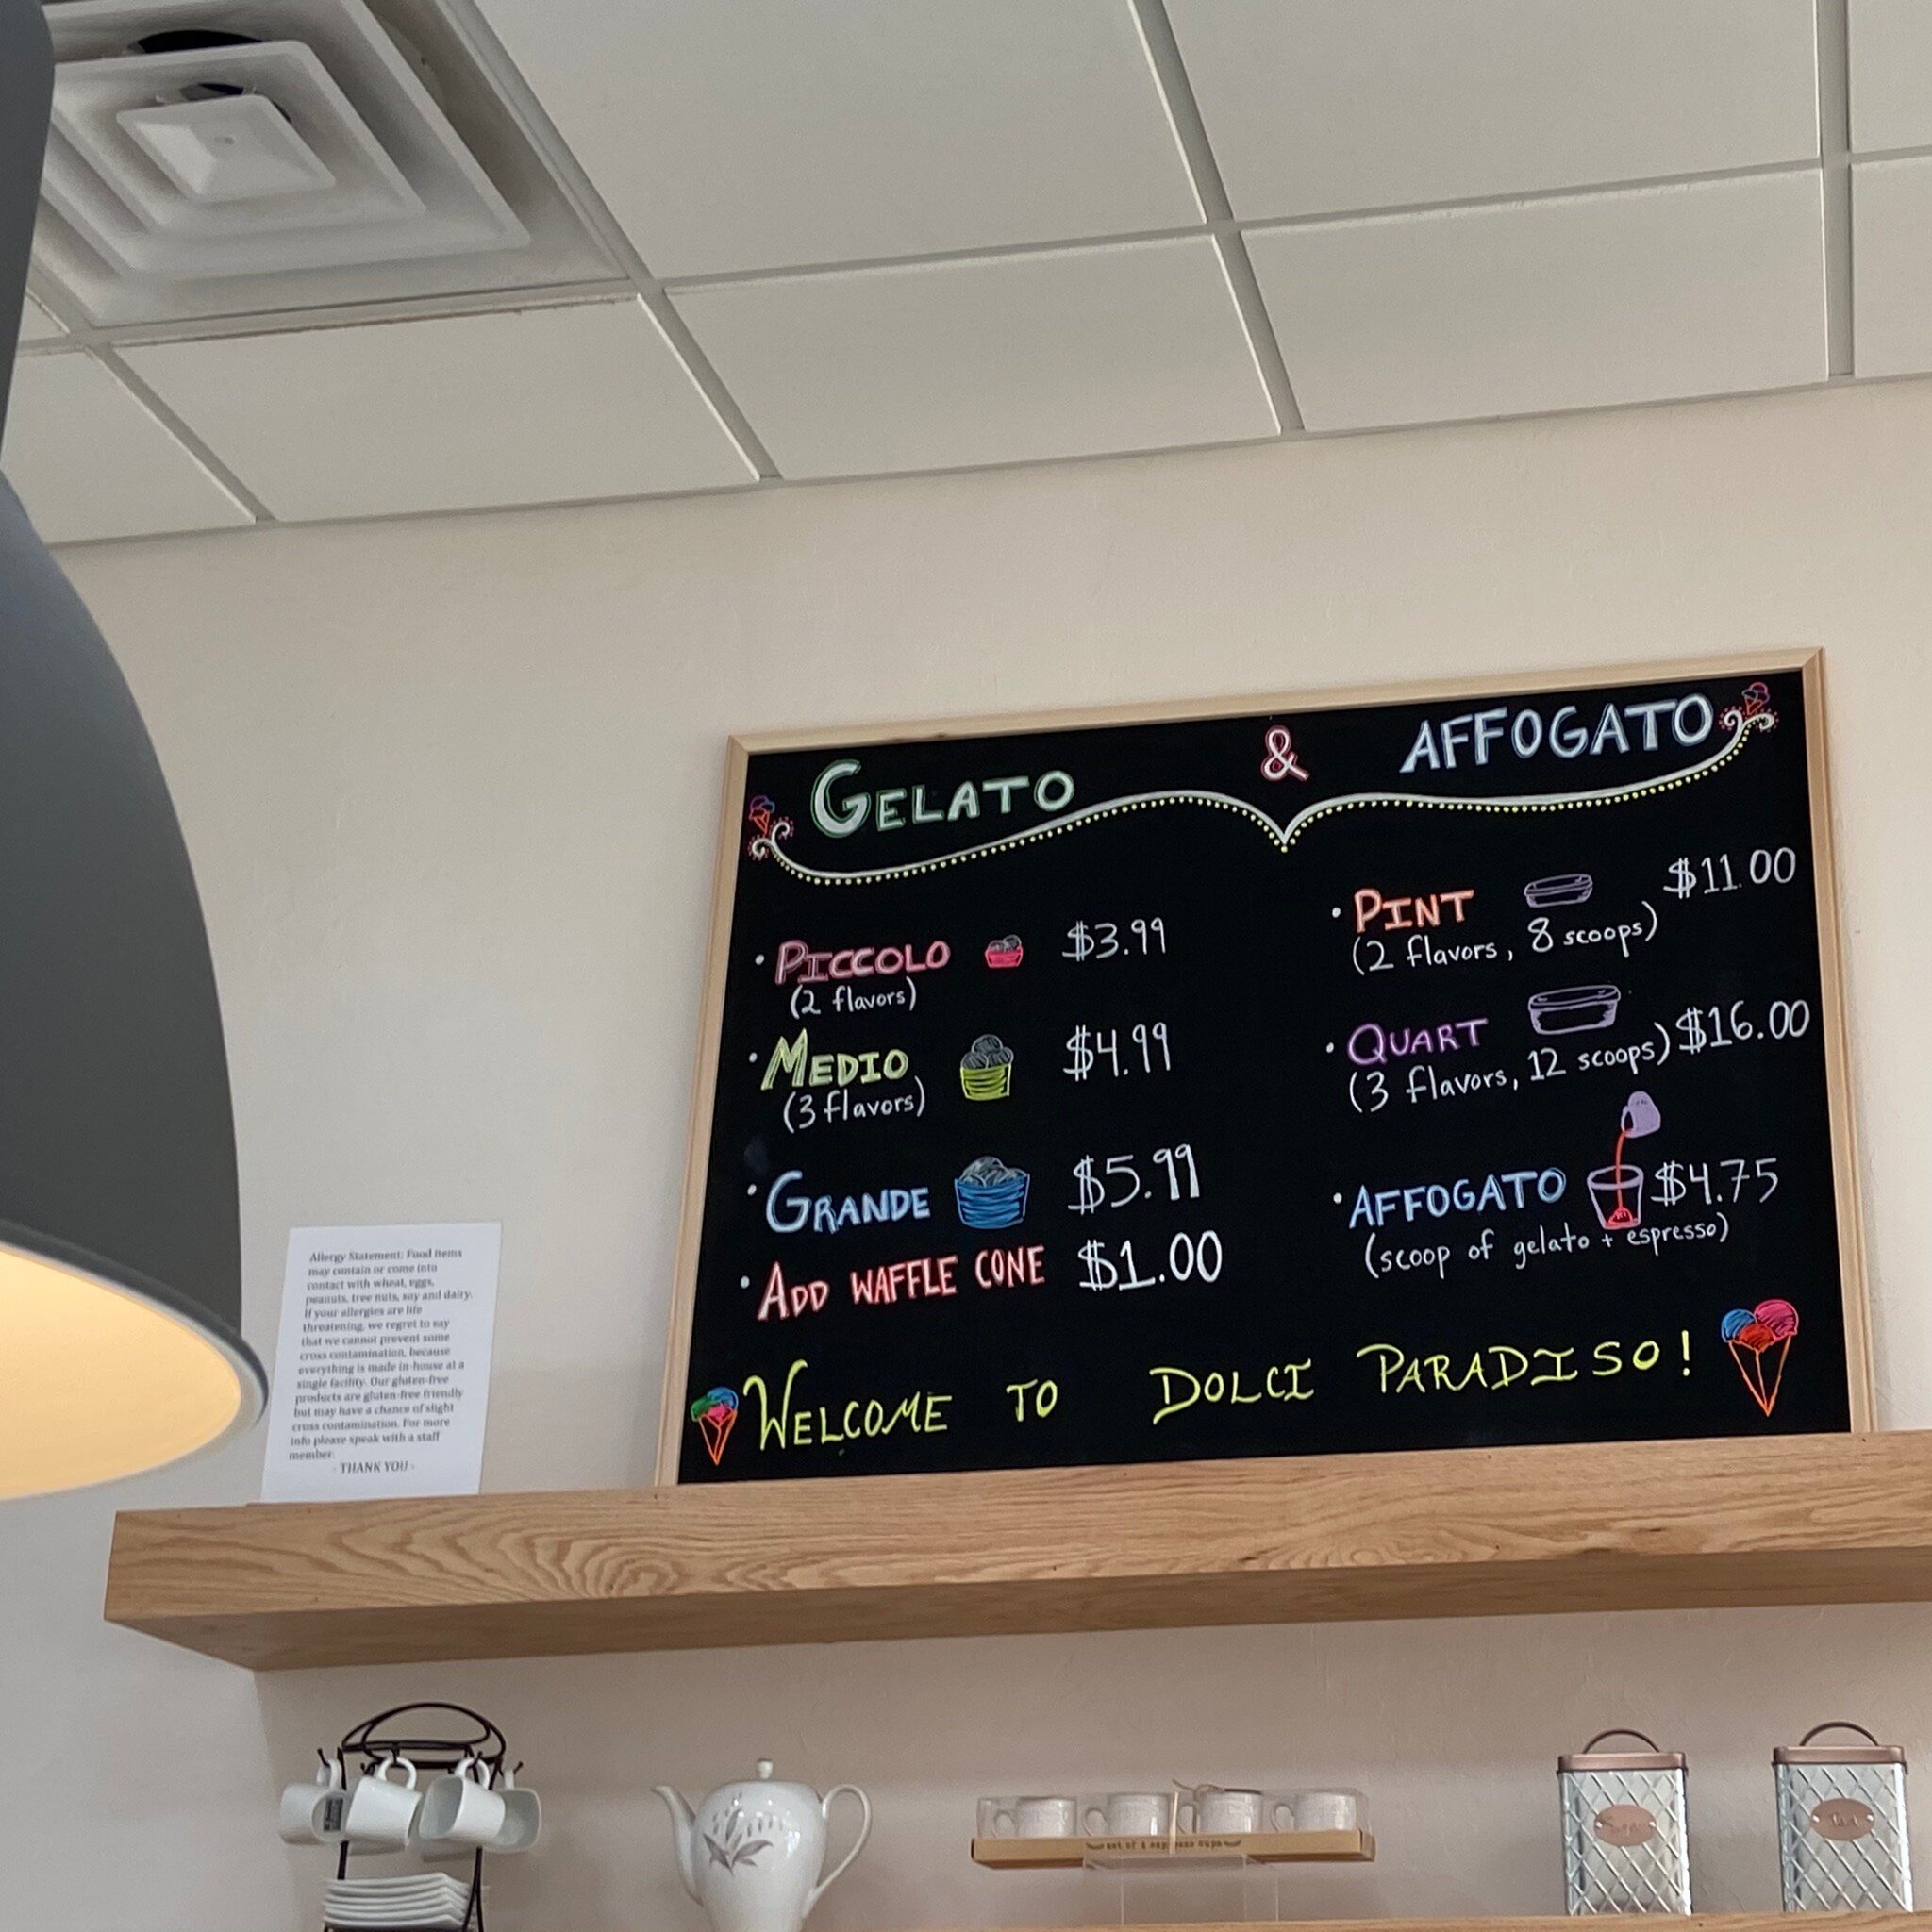 GELATO & AFFOGATO
• PICCOLO $3.99
(2 flavors)
• MEDIO $4.99
(3 flavors)
• GRANDE $5.99
• ADD WAFFLE CONE $1.00
• PINT $11.00
(2 flavors, 8 scoops)
• QUART $16.00
(3 flavors, 12 scoops)
• AFFOGATO $4.75
(scoop of gelato + espresso)
WELCOME TO DOLCI PARADISO!
Allergy Statement: Food items
may contain or come into
contact with wheat, eggs,
peanuts, tree nuts, soy and dairy.
If your allergies are life
threatening, we regret to say
that we cannot prevent some
cross contamination, because
everything is made in-house at a
single facility. Our gluten-free
products are gluten-free friendly
but may have a chance of slight
cross contamination. For more
info please speak with a staff
member.
- THANK YOU -
set of 4 espresso cups